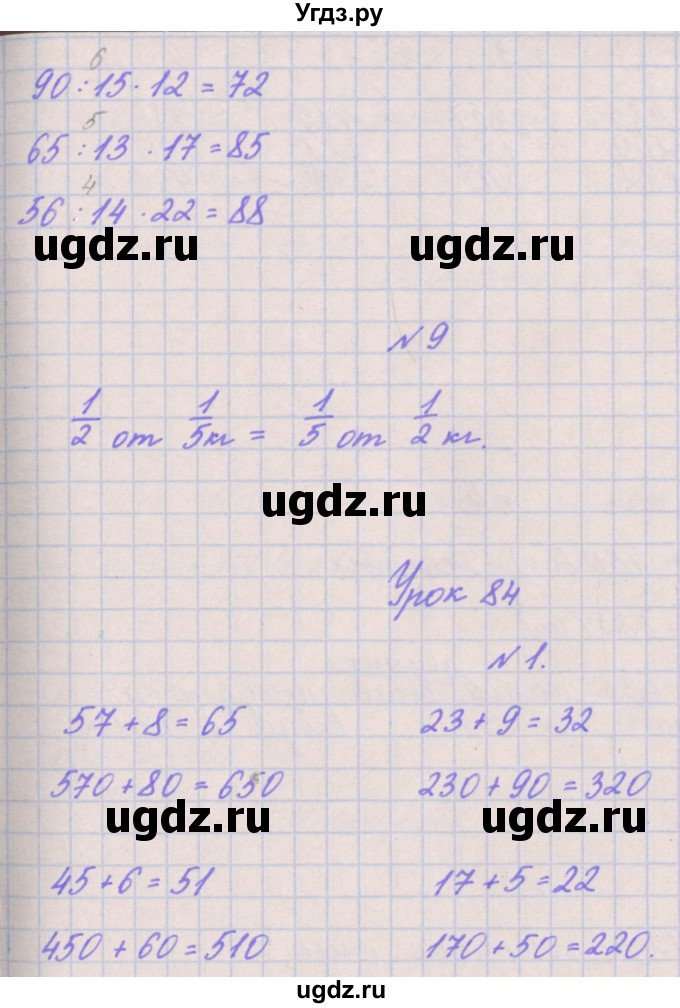 Угдз.ру
6
90 : 15 · 12 = 72
5
65 : 13 · 17 = 85
4
56 : 14 · 22 = 88
ugdz.ru ugdz.ru
№ 9
1/2 от 1/5 кг = 1/5 от 1/2 кг.
ugdz.ru
Урок 84
№ 1.
57 + 8 = 65 23 + 9 = 32
570 + 80 = 650 230 + 90 = 320
ugdz.ru ugdz.ru
45 + 6 = 51 17 + 5 = 22
450 + 60 = 510 170 + 50 = 220.
ugdz.ru